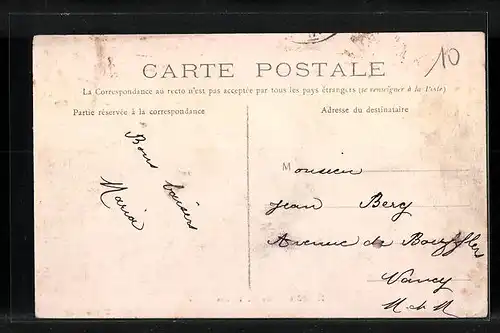 10
CARTE POSTALE
La Correspondance au recto n'est pas acceptée par tous les pays étrangers (se renseigner à la Poste)
Partie réservée à la correspondance
Adresse du destinataire
Bons baisers
Maria
Monsieur
Jean Berg
Avenue de Boufflers
Nancy
M & M